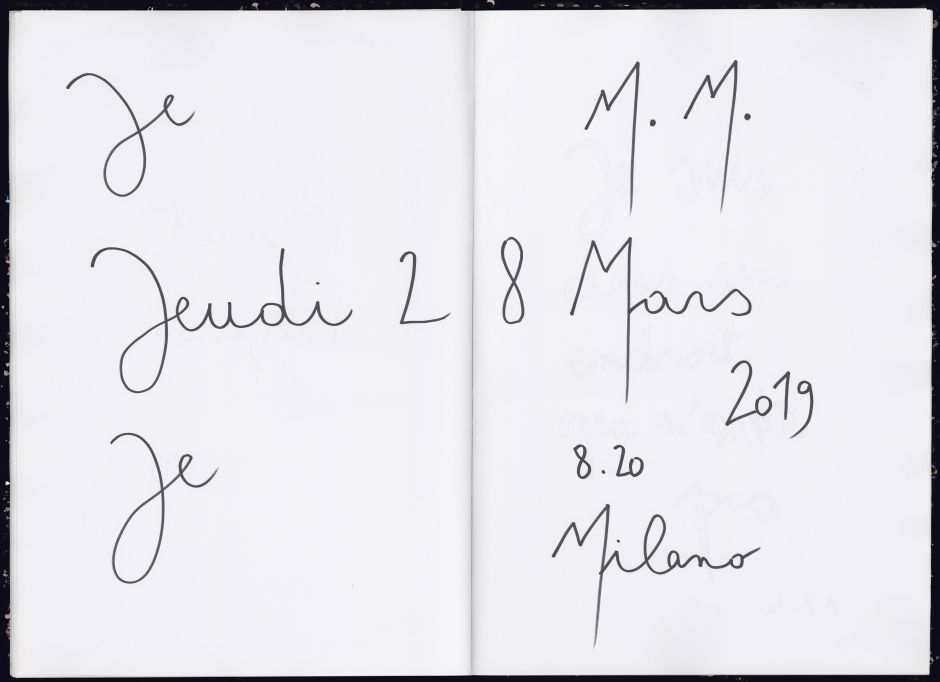 Je
Jeudi 2
Je
M. M.
8 Mars
2019
8.20
Milano